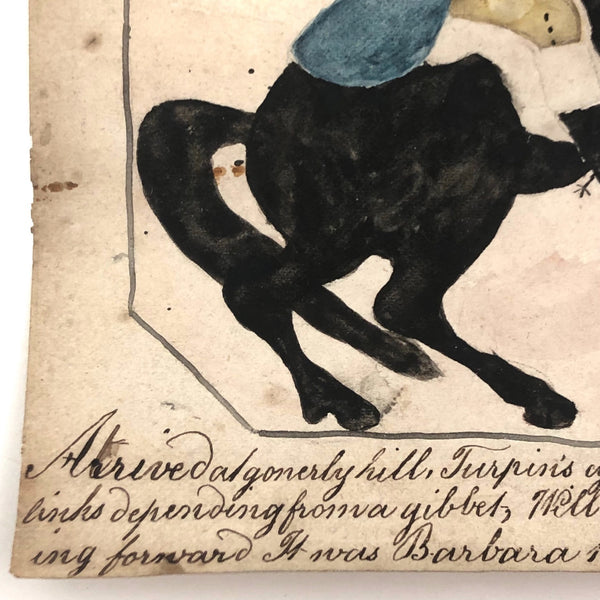 Arrived at gonerly hill, Turpin's
links depending from a gibbet, Will
ing forward It was Barbara